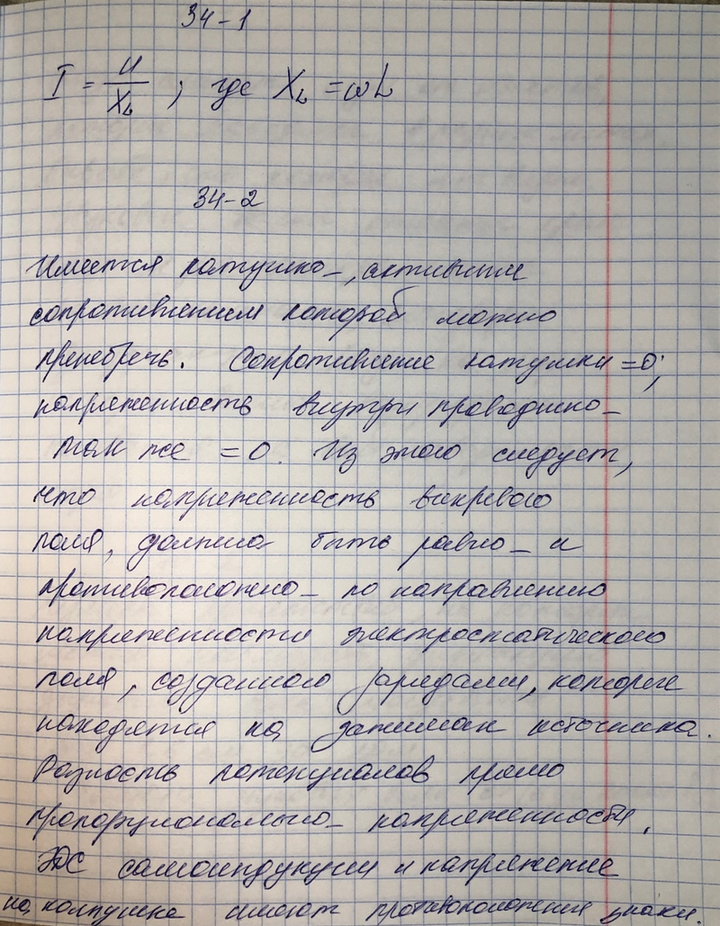 34-1
I = U/X_L ; где X_L = ωL
34-2
Имеется катушка, активным
сопротивлением которой можно
пренебречь. Сопротивление катушки = 0;
напряженность внутри проводника
так же = 0. Из этого следует,
что напряженность вихревого
поля, должна быть равна и
противоположна по направлению
напряженности электростатического
поля, созданного зарядами, которые
находятся на зажимах источника.
Разность потенциалов прямо
пропорциональна напряженности.
ЭДС самоиндукции и напряжение
на катушке имеют противоположные знаки.